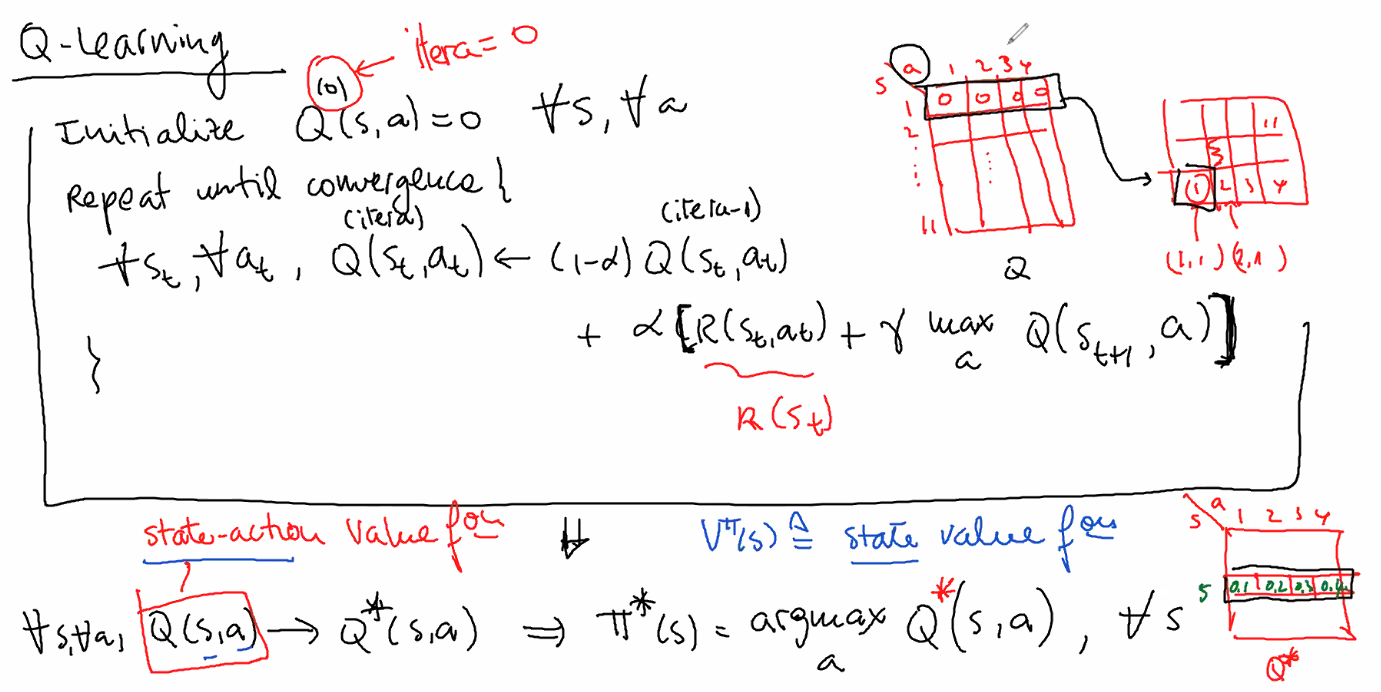 Q-Learning
(0) ← itera = 0
Initialize Q(s,a) = 0 ∀s, ∀a
Repeat until convergence {
(itera) (itera-1)
∀s_t, ∀a_t, Q(s_t,a_t) ← (1-α) Q(s_t,a_t)
+ α [R(s_t,a_t) + γ max_a Q(s_{t+1}, a)]
R(s_t)
}
s a 1 2 3 4
1 0 0 0 0
2
⋮
11
Q
11
1 2 3 4
(1,1) (2,1)
state-action value fcn
⇓
V^π(s) ≜ state value fcn
∀s,∀a, Q(s,a) → Q*(s,a) ⇒ π*(s) = argmax_a Q*(s,a), ∀s
s a 1 2 3 4
5 0,1 0,2 0,3 0,4
Q*